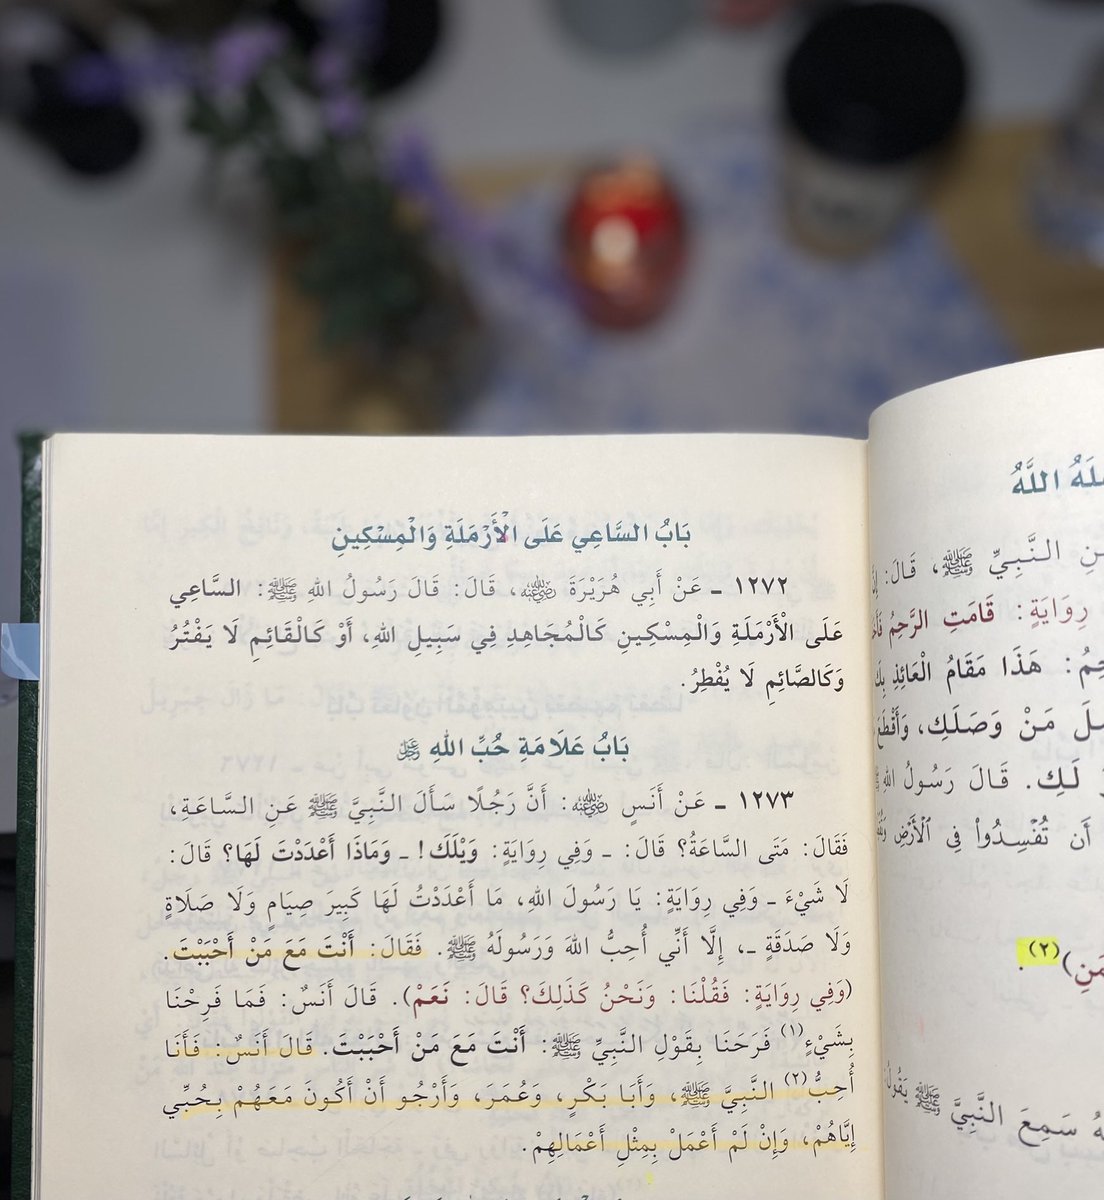 بَابُ السَّاعِي عَلَى الْأَرْمَلَةِ وَالْمِسْكِينِ
١٢٧٢ ـ عَنْ أَبِي هُرَيْرَةَ رضي الله عنه، قَالَ: قَالَ رَسُولُ اللهِ ﷺ: السَّاعِي
عَلَى الْأَرْمَلَةِ وَالْمِسْكِينِ كَالْمُجَاهِدِ فِي سَبِيلِ اللهِ، أَوْ كَالْقَائِمِ لَا يَفْتُرُ
وَكَالصَّائِمِ لَا يُفْطِرُ.
بَابُ عَلَامَةِ حُبِّ اللهِ عز وجل
١٢٧٣ ـ عَنْ أَنَسٍ رضي الله عنه: أَنَّ رَجُلًا سَأَلَ النَّبِيَّ ﷺ عَنِ السَّاعَةِ،
فَقَالَ: مَتَى السَّاعَةُ؟ قَالَ: ـ وَفِي رِوَايَةٍ: وَيْلَكَ! ـ وَمَاذَا أَعْدَدْتَ لَهَا؟ قَالَ:
لَا شَيْءَ ـ وَفِي رِوَايَةٍ: يَا رَسُولَ اللهِ، مَا أَعْدَدْتُ لَهَا كَبِيرَ صِيَامٍ وَلَا صَلَاةٍ
وَلَا صَدَقَةٍ ـ، إِلَّا أَنِّي أُحِبُّ اللهَ وَرَسُولَهُ ﷺ. فَقَالَ: أَنْتَ مَعَ مَنْ أَحْبَبْتَ.
(وَفِي رِوَايَةٍ: فَقُلْنَا: وَنَحْنُ كَذَلِكَ؟ قَالَ: نَعَمْ). قَالَ أَنَسٌ: فَمَا فَرِحْنَا
بِشَيْءٍ(١) فَرَحَنَا بِقَوْلِ النَّبِيِّ ﷺ: أَنْتَ مَعَ مَنْ أَحْبَبْتَ. قَالَ أَنَسٌ: فَأَنَا
أُحِبُّ(٢) النَّبِيَّ ﷺ، وَأَبَا بَكْرٍ، وَعُمَرَ، وَأَرْجُو أَنْ أَكُونَ مَعَهُمْ بِحُبِّي
إِيَّاهُمْ، وَإِنْ لَمْ أَعْمَلْ بِمِثْلِ أَعْمَالِهِمْ.
اللَّهُ
النَّبِيِّ ﷺ، قَالَ:
رِوَايَةٍ: قَامَتِ الرَّحِمُ
هَذَا مَقَامُ الْعَائِذِ
مَنْ وَصَلَكِ،
لَكِ. قَالَ رَسُولُ
أَن تُفْسِدُوا۟ فِى ٱلْأَرْضِ
(٢).
سَمِعَ النَّبِيَّ ﷺ